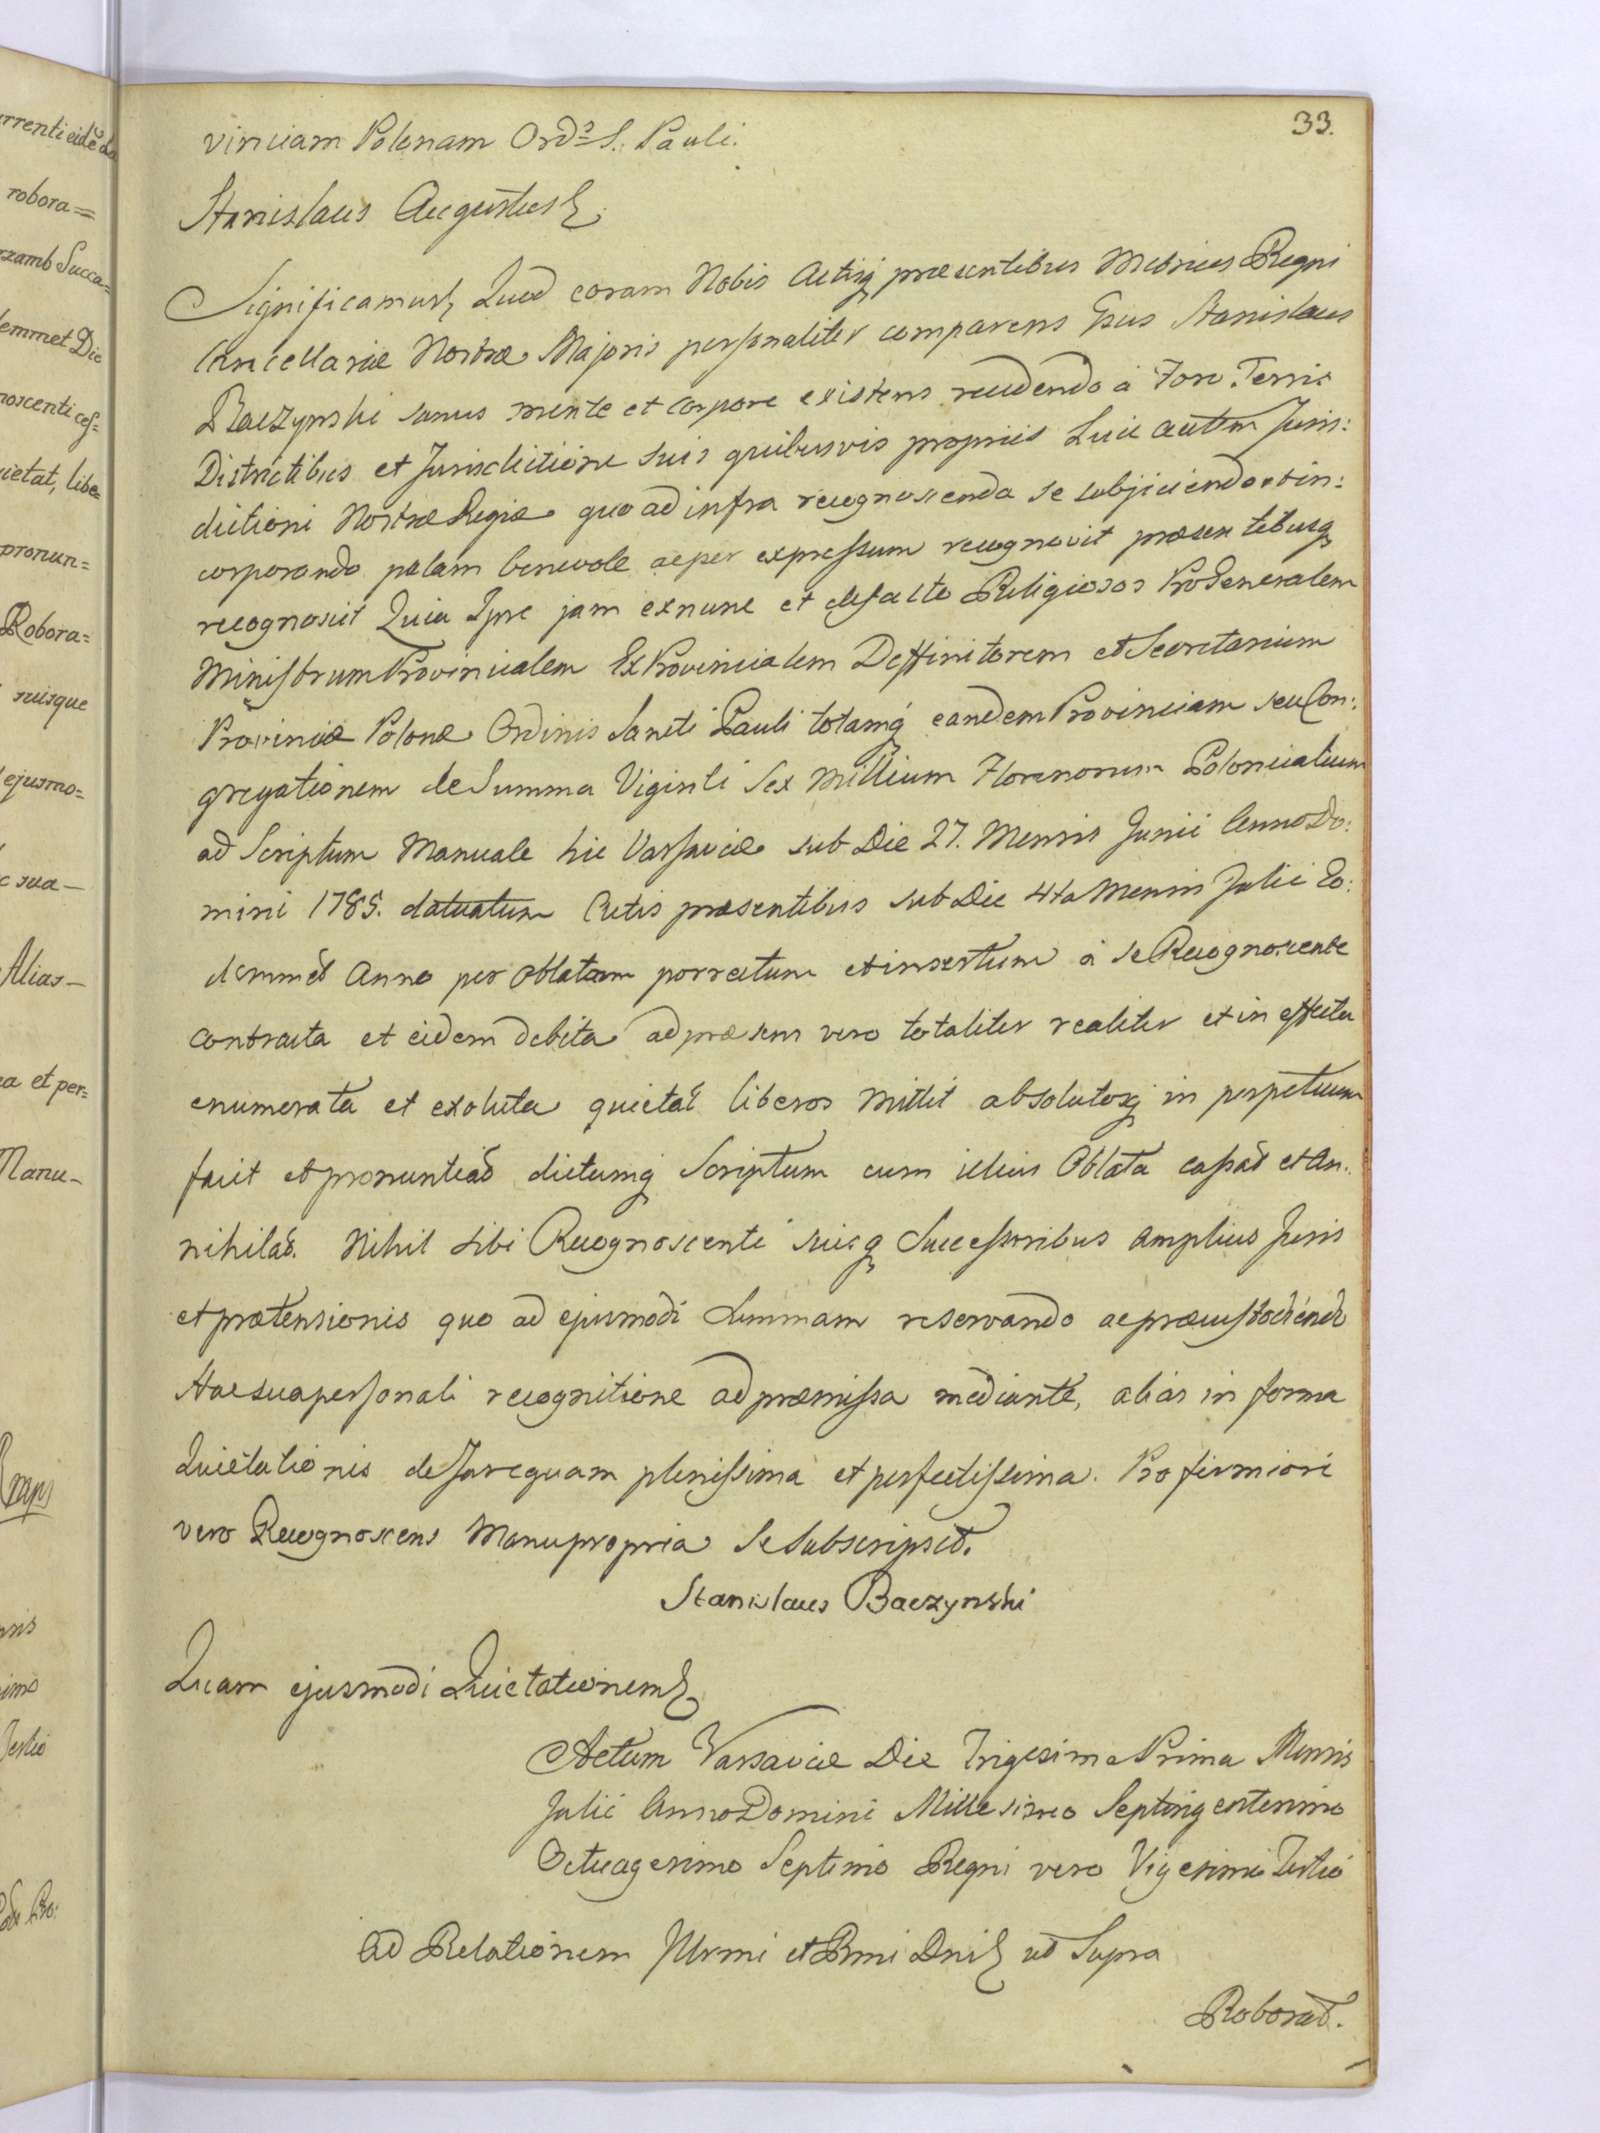 33.
vinciam Polonam Ords S. Pauli.
Stanislaus Augustus
Significamus Quod coram Nobis Actisq praesentibus Metrices Regni
Cancellariae Nostrae Majoris personaliter comparens Gsus Stanislaus
Baczynski sanus mente et corpore existens recedendo à Foro Terris
Districtibus et Jurisdictione suis quibusvis propriis Suie autm Juris:
dictioni Nostrae Regiae quo ad infra recognoscenda se subjiciendo et in:
corporando palam benevole ac per expressum recognovit praesentibusq
recognoscit Quia Ipse jam ex nunc et de facto Religiosos ProGeneralem
Ministrum Provincialem ExProvincialem Deffinitorem et Secretarium
Provinciae Polonae Ordinis Sancti Pauli totamq eandem Provinciam seu Con:
gregationem de Summa Viginti Sex Millium Florenorum Polonicalium
ad Scriptum Manuale hic Varsaviae sub Die 27. Mensis Junii Anno Do:
mini 1785. datuatum Actis praesentibus sub Die 4ta Mensis Julii Eo:
demmet Anno per Oblatam porrectum et insertum à se Recognoscente
contracta et eidem debita ad praesens vero totaliter realiter et in effectu
enumerata et exoluta quietat liberos mittit absolutosq in perpetuum
facit et pronuntiat dictumq Scriptum cum illius Oblata cassat et An:
nihilat. Nihil sibi Recognoscenti suisq Successoribus amplius Juris
et praetensionis quo ad ejusmodi Summam reservando ac praecustodiendo
Hac sua personali recognitione ad praemissa mediante, alias in forma
Quietationis de Jure quam plenissima et perfectissima. Pro firmiori
vero Recognoscens Manu propria Se Subscripsit.
Stanislaus Baczynski
Quam ejusmodi Quietationem
Actum Varsaviae Die Trigesima Prima Mensis
Julii Anno Domini Millesimo Septingentesimo
Octuagesimo Septimo Regni vero Vigesimo Tertio
Ad Relationem Illrmi et Rmi Dni ut Supra
Roborat.
robora=
Succa=
emmet Die
noscenti ces=
ietat, libe=
pronun=
Robora=
suisque
ejusmo=
sua—
Alias—
a et per=
Manu-